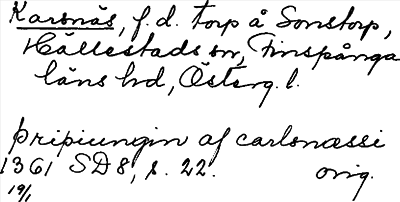 Karsnäs, f.d. torp å Sonstorp,
Hällestads sn, Finspånga
läns hd, Österg. l.
þripiungin af carlsnæssi
1361 SD 8, s. 22. orig.
19/1